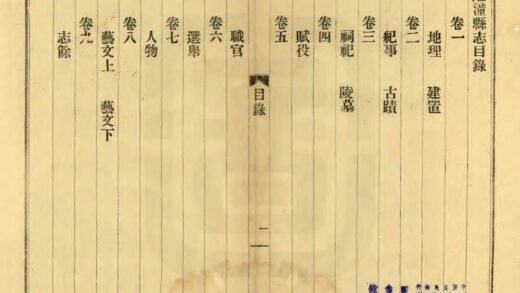 潼縣志目錄
卷一
地理 建置
卷二
紀事 古蹟
卷三
祠祀 陵墓
卷四
賦役
卷五
職官
目錄
一
卷六
選舉
卷七
人物
卷八
藝文上 藝文下
卷九
志餘